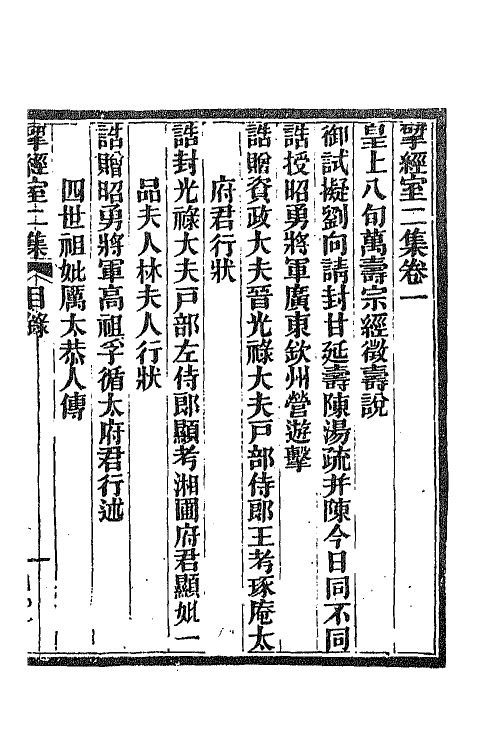 揅經室二集卷一
皇上八旬萬壽宗經徵壽說
御試擬劉向請封甘延壽陳湯疏并陳今日同不同
誥授昭勇將軍廣東欽州營遊擊
誥贈資政大夫晉光祿大夫戶部侍郎王考琢庵太
府君行狀
誥封光祿大夫戶部左侍郎顯考湘圃府君顯妣一
品夫人林夫人行狀
誥贈昭勇將軍高祖孚循太府君行述
四世祖妣厲太恭人傳
揅經室二集 目錄